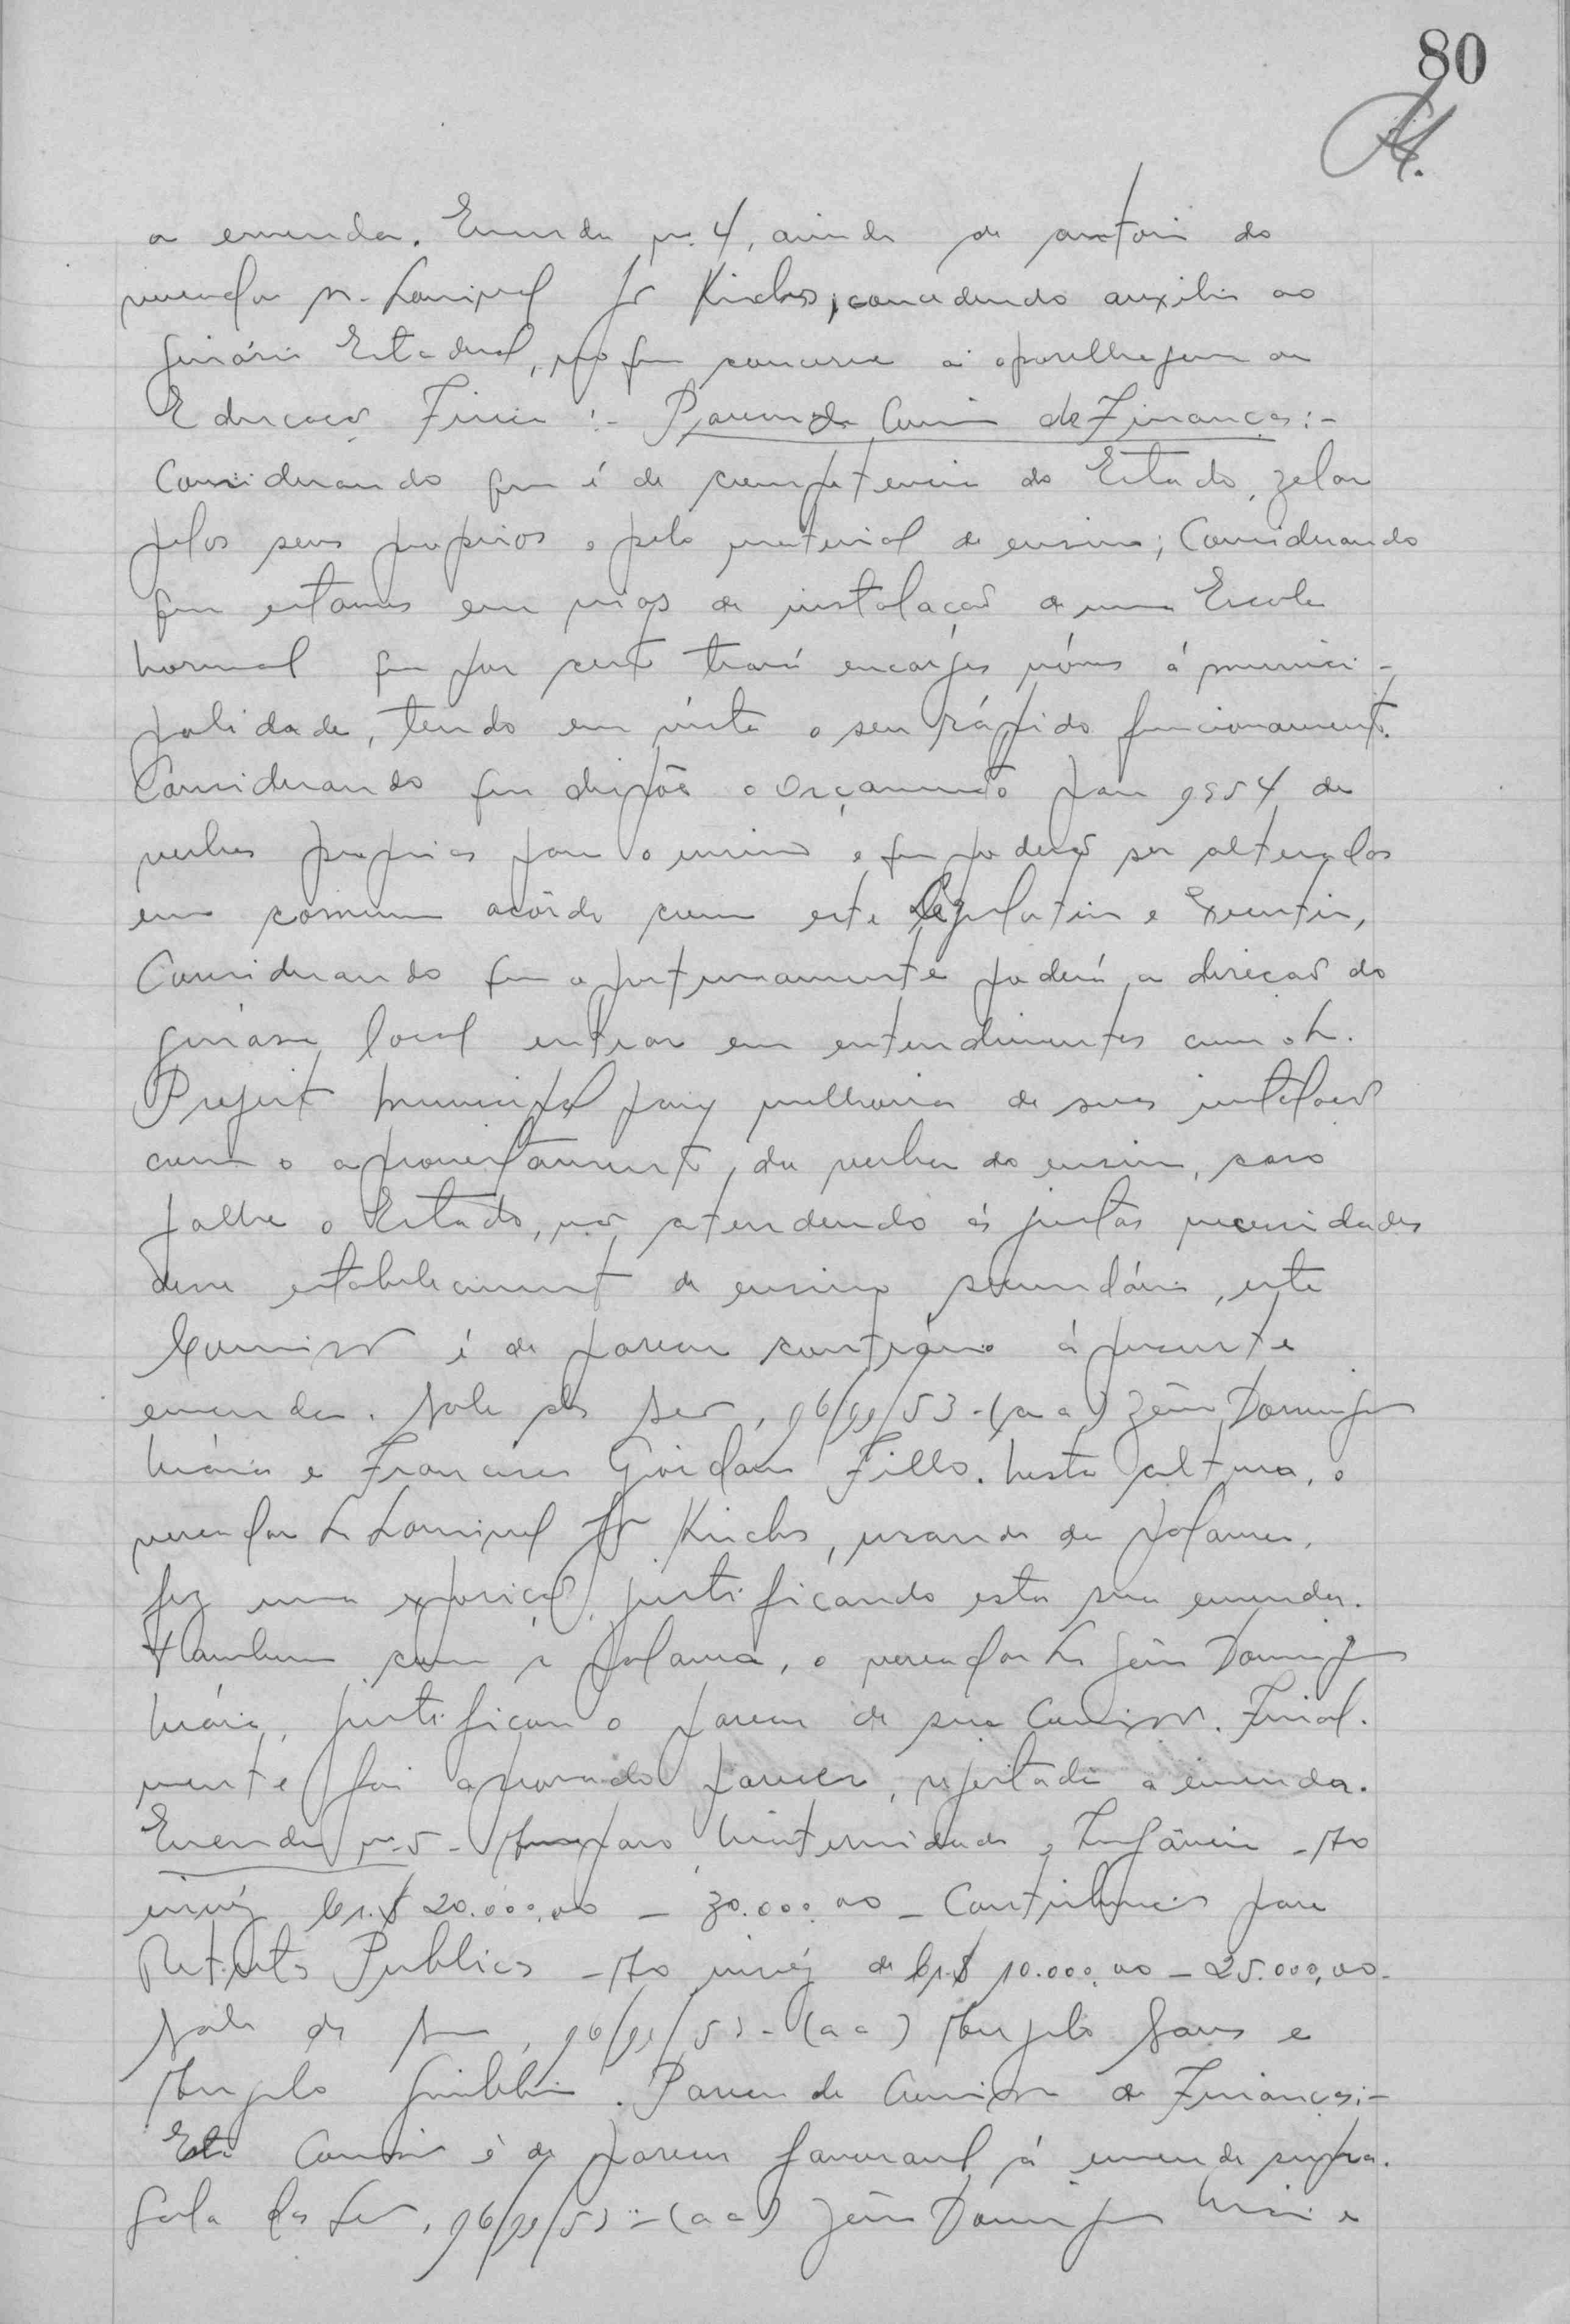 80
a emenda. Emenda nº. 4, ainda de autoria do
vereador Sr. Lourival Jr Kirchs, concedendo auxilio ao
Ginásio Estadual, no que concerne a aparelhagem de
Educação Fisica :- Parecer da Comissão de Finanças:-
Considerando que é de competencia do Estado, zelar
pelos seus proprios e pelo material de ensino; Considerando
que estamos em vias de instalação de uma Escola
Normal que por certo trará encargos novos á munici-
palidade, tendo em vista o seu rápido funcionamento.
Considerando que dispõe o Orçamento para 1954 de
verbas proprias para o ensino e que poderão ser alteradas
em comum acôrdo com este Legislativo e Executivo,
Considerando que oportunamente poderá a direção do
ginásio local entrar em entendimentos com o Sr.
Prefeito Municipal para melhoria de suas instalações
com o aproveitamento da verba do ensino, caso
falhe o Estado, não atendendo ás justas necessidades
desse estabelecimento de ensino secundário, esta
Comissão é de parecer contrário á presente
emenda. Sala das Sessões, 16/11/53 - (a a) José Domingues
Mário e Francisco Giordano Filho. Nesta altura, o
vereador Sr Lourival Jr Kirchs, usando da palavra,
fez uma exposição justificando esta sua emenda.
Tambem com a palavra, o vereador Sr José Domingues
Mário, justificou o parecer de sua Comissão. Final-
mente foi aprovado parecer, rejeitada a emenda.
Emenda nº 5 - Amparo Maternidade e Infância - Ao
invéz Cr.$ 20.000,00 - 30.000,00 - Contribuição para
Publicos - Ao invéz de Cr.$ 10.000,00 - 25.000,00 -
Sala das Sessões, 16/11/53 - (a a) Angelo e
Angelo . Parecer da Comissão de Finanças:-
Esta Comissão é de parecer favoravel á emenda supra.
Sala das Sessões, 16/11/53 - (a a) José Domingues Mário e